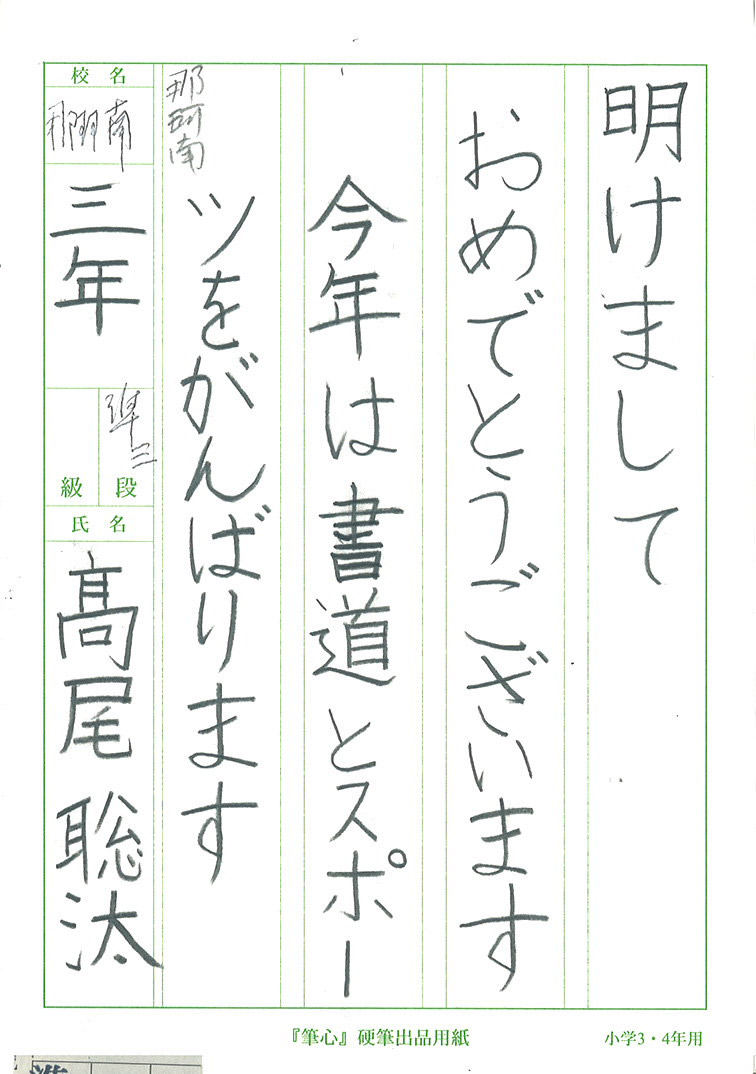 明けまして
おめでとうございます
今年は書道とスポー
ツをがんばります
那珂南
校名
那珂南
三年
準三
段
級
氏名
髙尾聡汰
『筆心』硬筆出品用紙
小学3・4年用